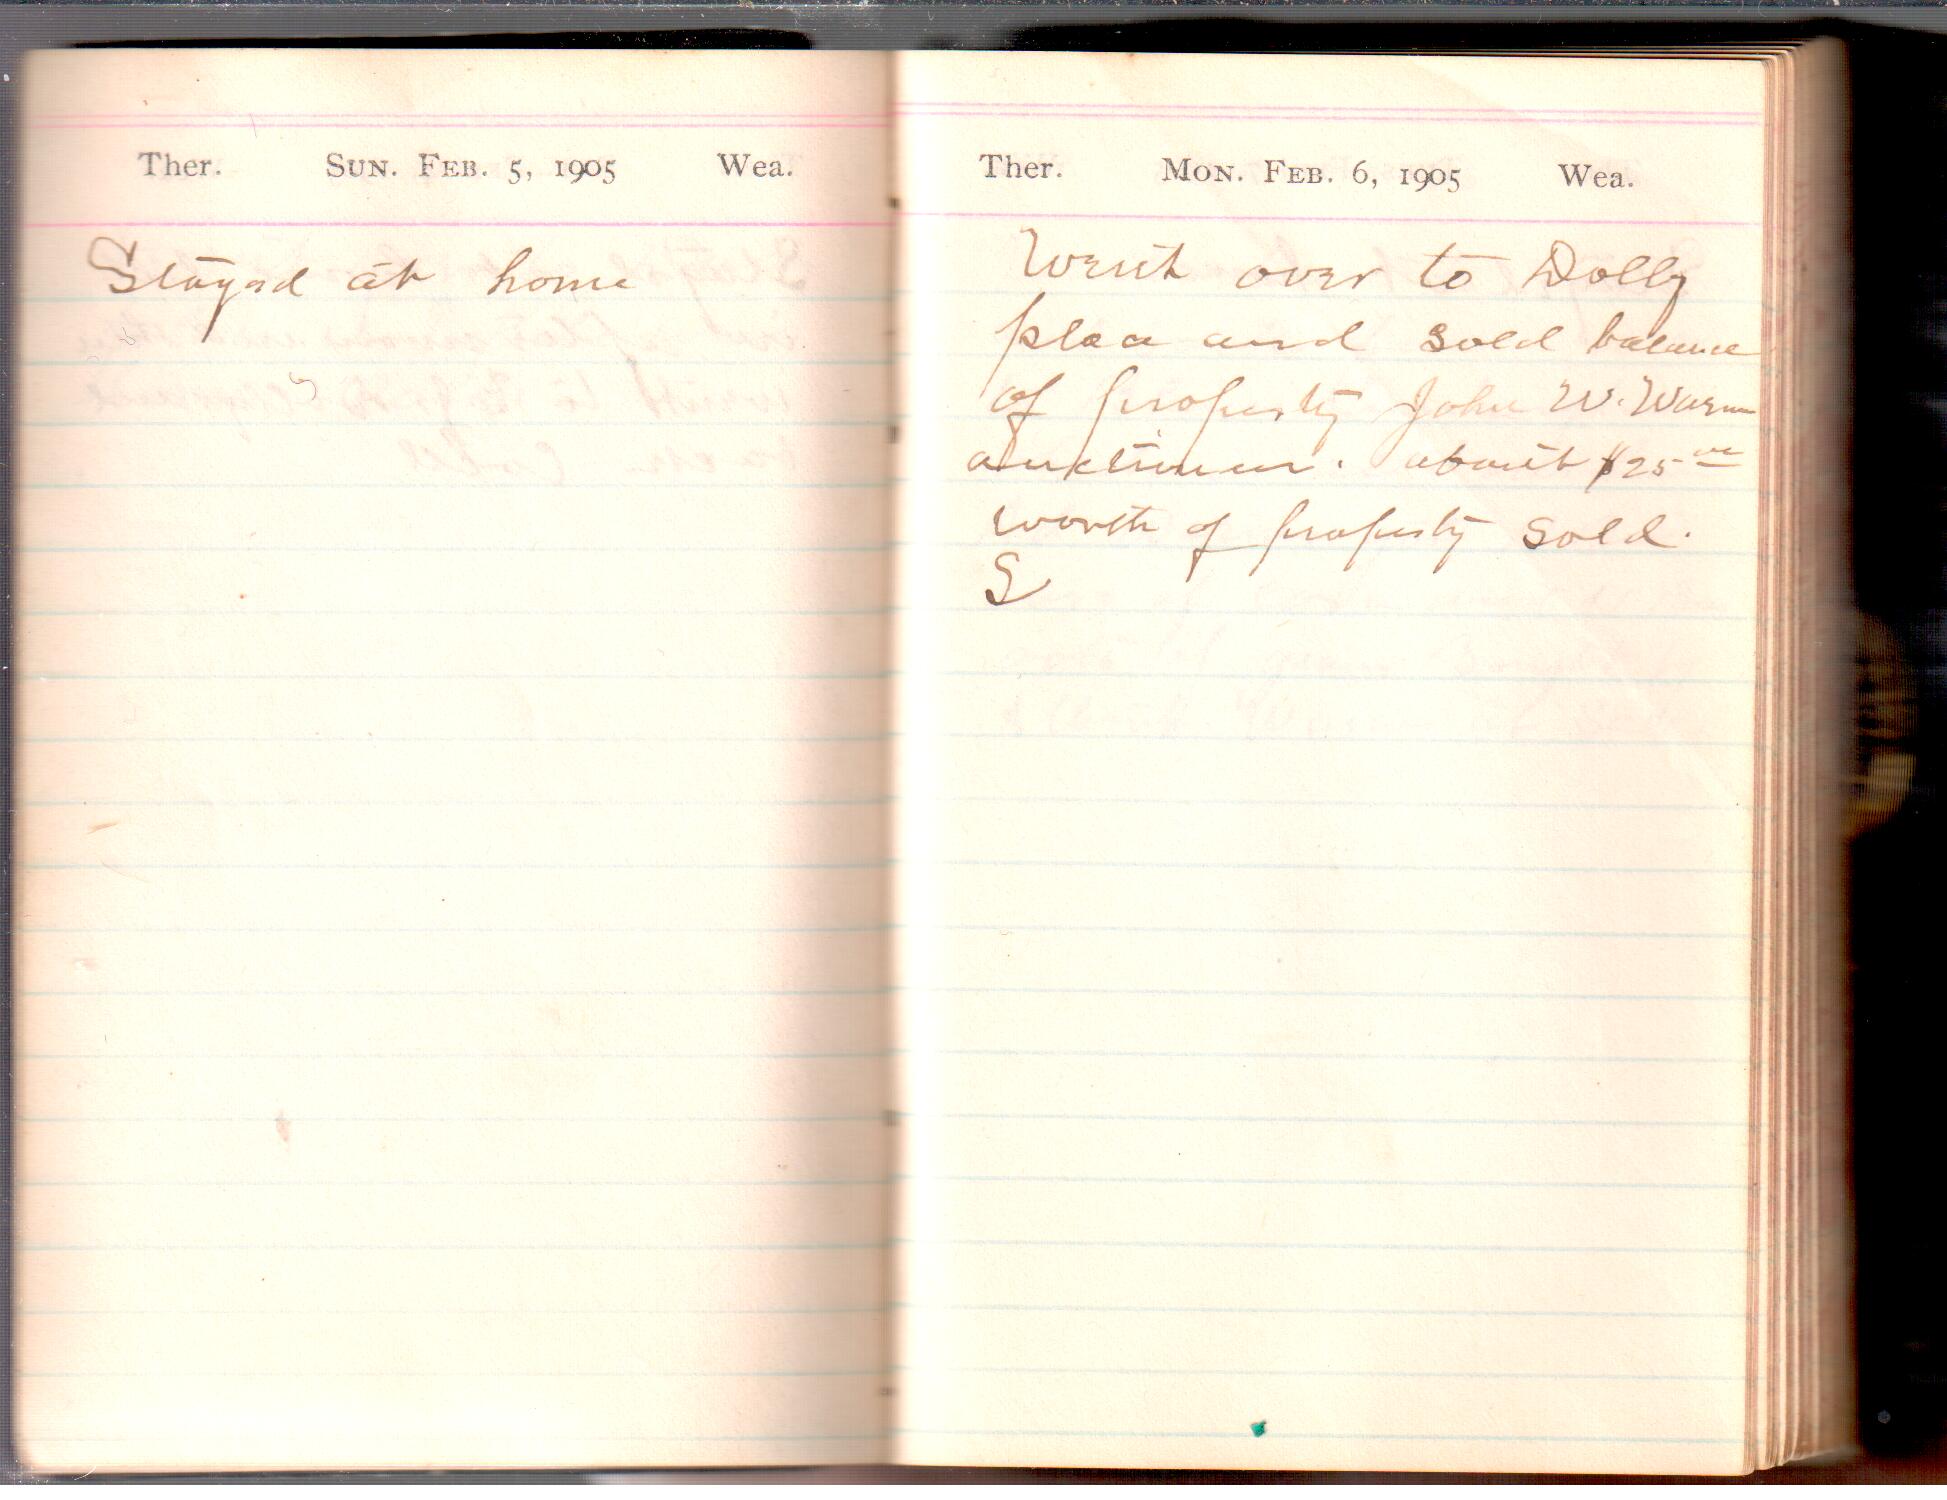 Ther. Sun. Feb. 5, 1905 Wea.
Stayed at home
Ther. Mon. Feb. 6, 1905 Wea.
Went over to Dolly
place and sold balance
of property John W. Warm
auctioneer. about $25 00
worth of property sold.
S